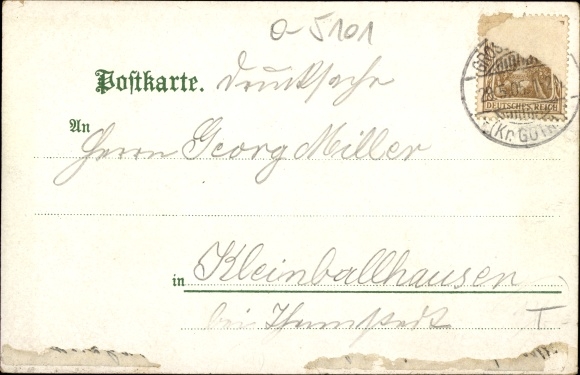 a-5101
Postkarte. Drucksache
An
Herrn Georg Miller
in Kleinballhausen
bei Thamsbrück
DEUTSCHES REICH
(Kr. GOTHA)